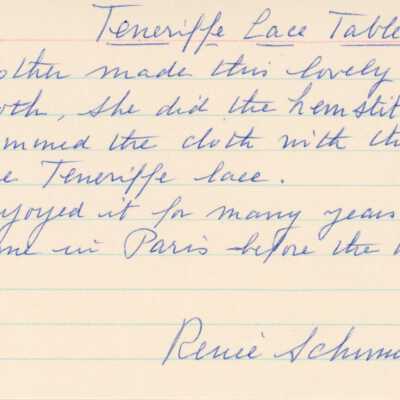 Teneriffe Lace Table
other made this lovely
oth, she did the hemstit
mmed the cloth with th
e Teneriffe lace.
joyed it for many years
me in Paris before the
Renée Schum